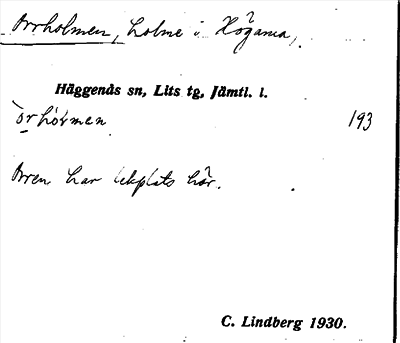 Orrholmen, holme i Högarna,
Häggenås sn, Lits tg, Jämtl. l.
òrhòłmen 193
Orren har lekplats här.
C. Lindberg 1930.